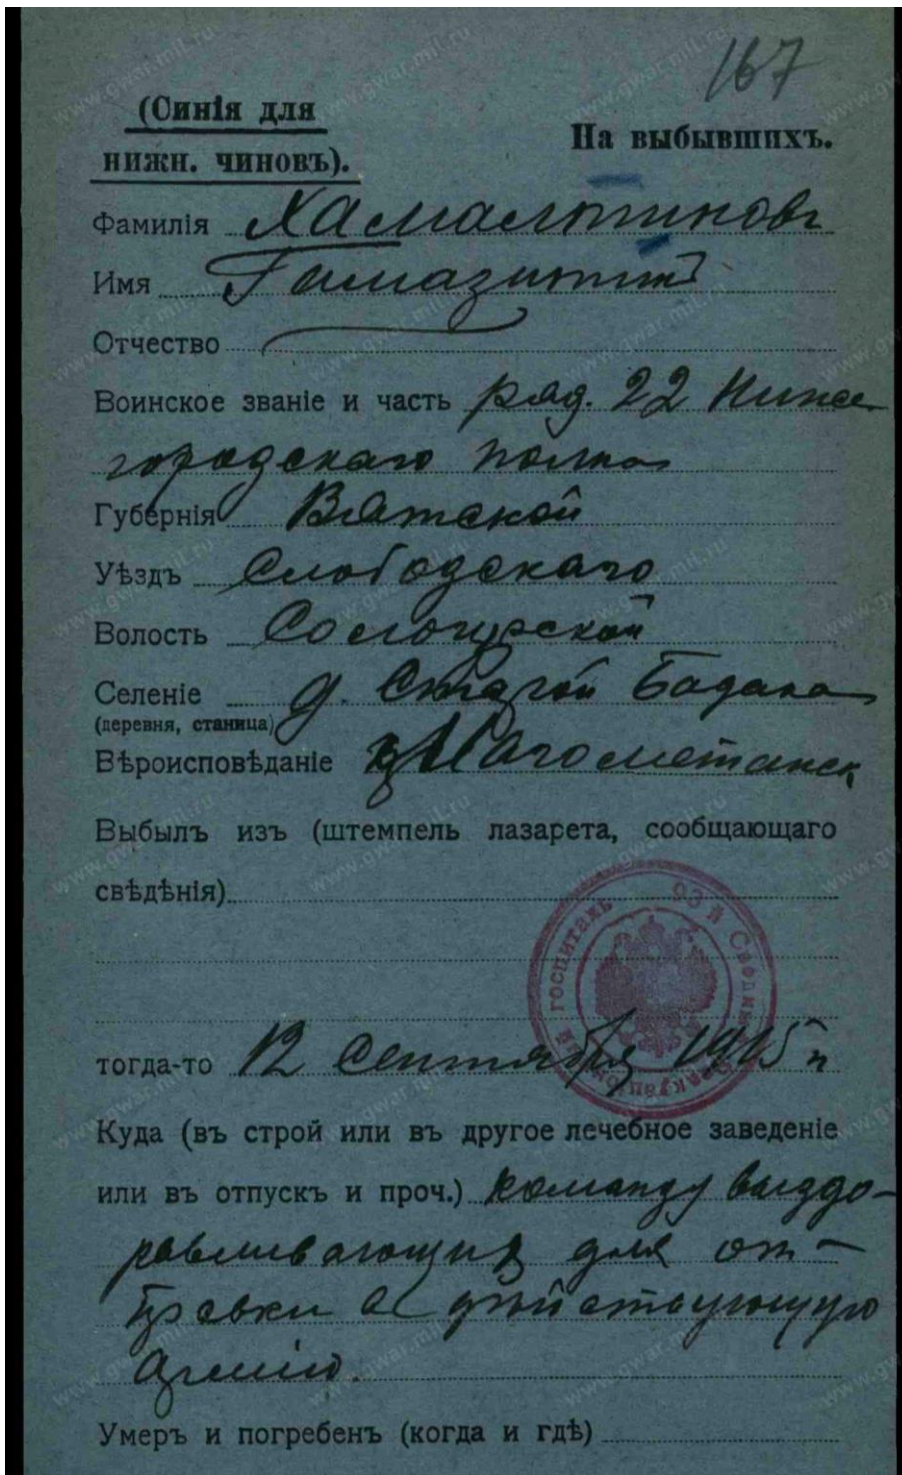 167
(Синія для
нижн. чиновъ).
На выбывшихъ.
Фамилія Хамальтиновъ
Имя
Отчество
Воинское званіе и часть ряд. 22 Ниже
городскаго полка
Губернія Вятской
Уѣздъ Слободскаго
Волость
Селеніе д. Старой
(деревня, станица)
Вѣроисповѣданіе Магометанск
Выбылъ изъ (штемпель лазарета, сообщающаго
свѣдѣнія)
93й Сводный Эвакуаціонный госпиталь
тогда-то 12 Сентября 1915 г
Куда (въ строй или въ другое лечебное заведеніе
или въ отпускъ и проч.) команду выздо-
равливающихъ для от-
правки в дѣйствующую
армію.
Умеръ и погребенъ (когда и гдѣ)
www.gwar.mil.ru